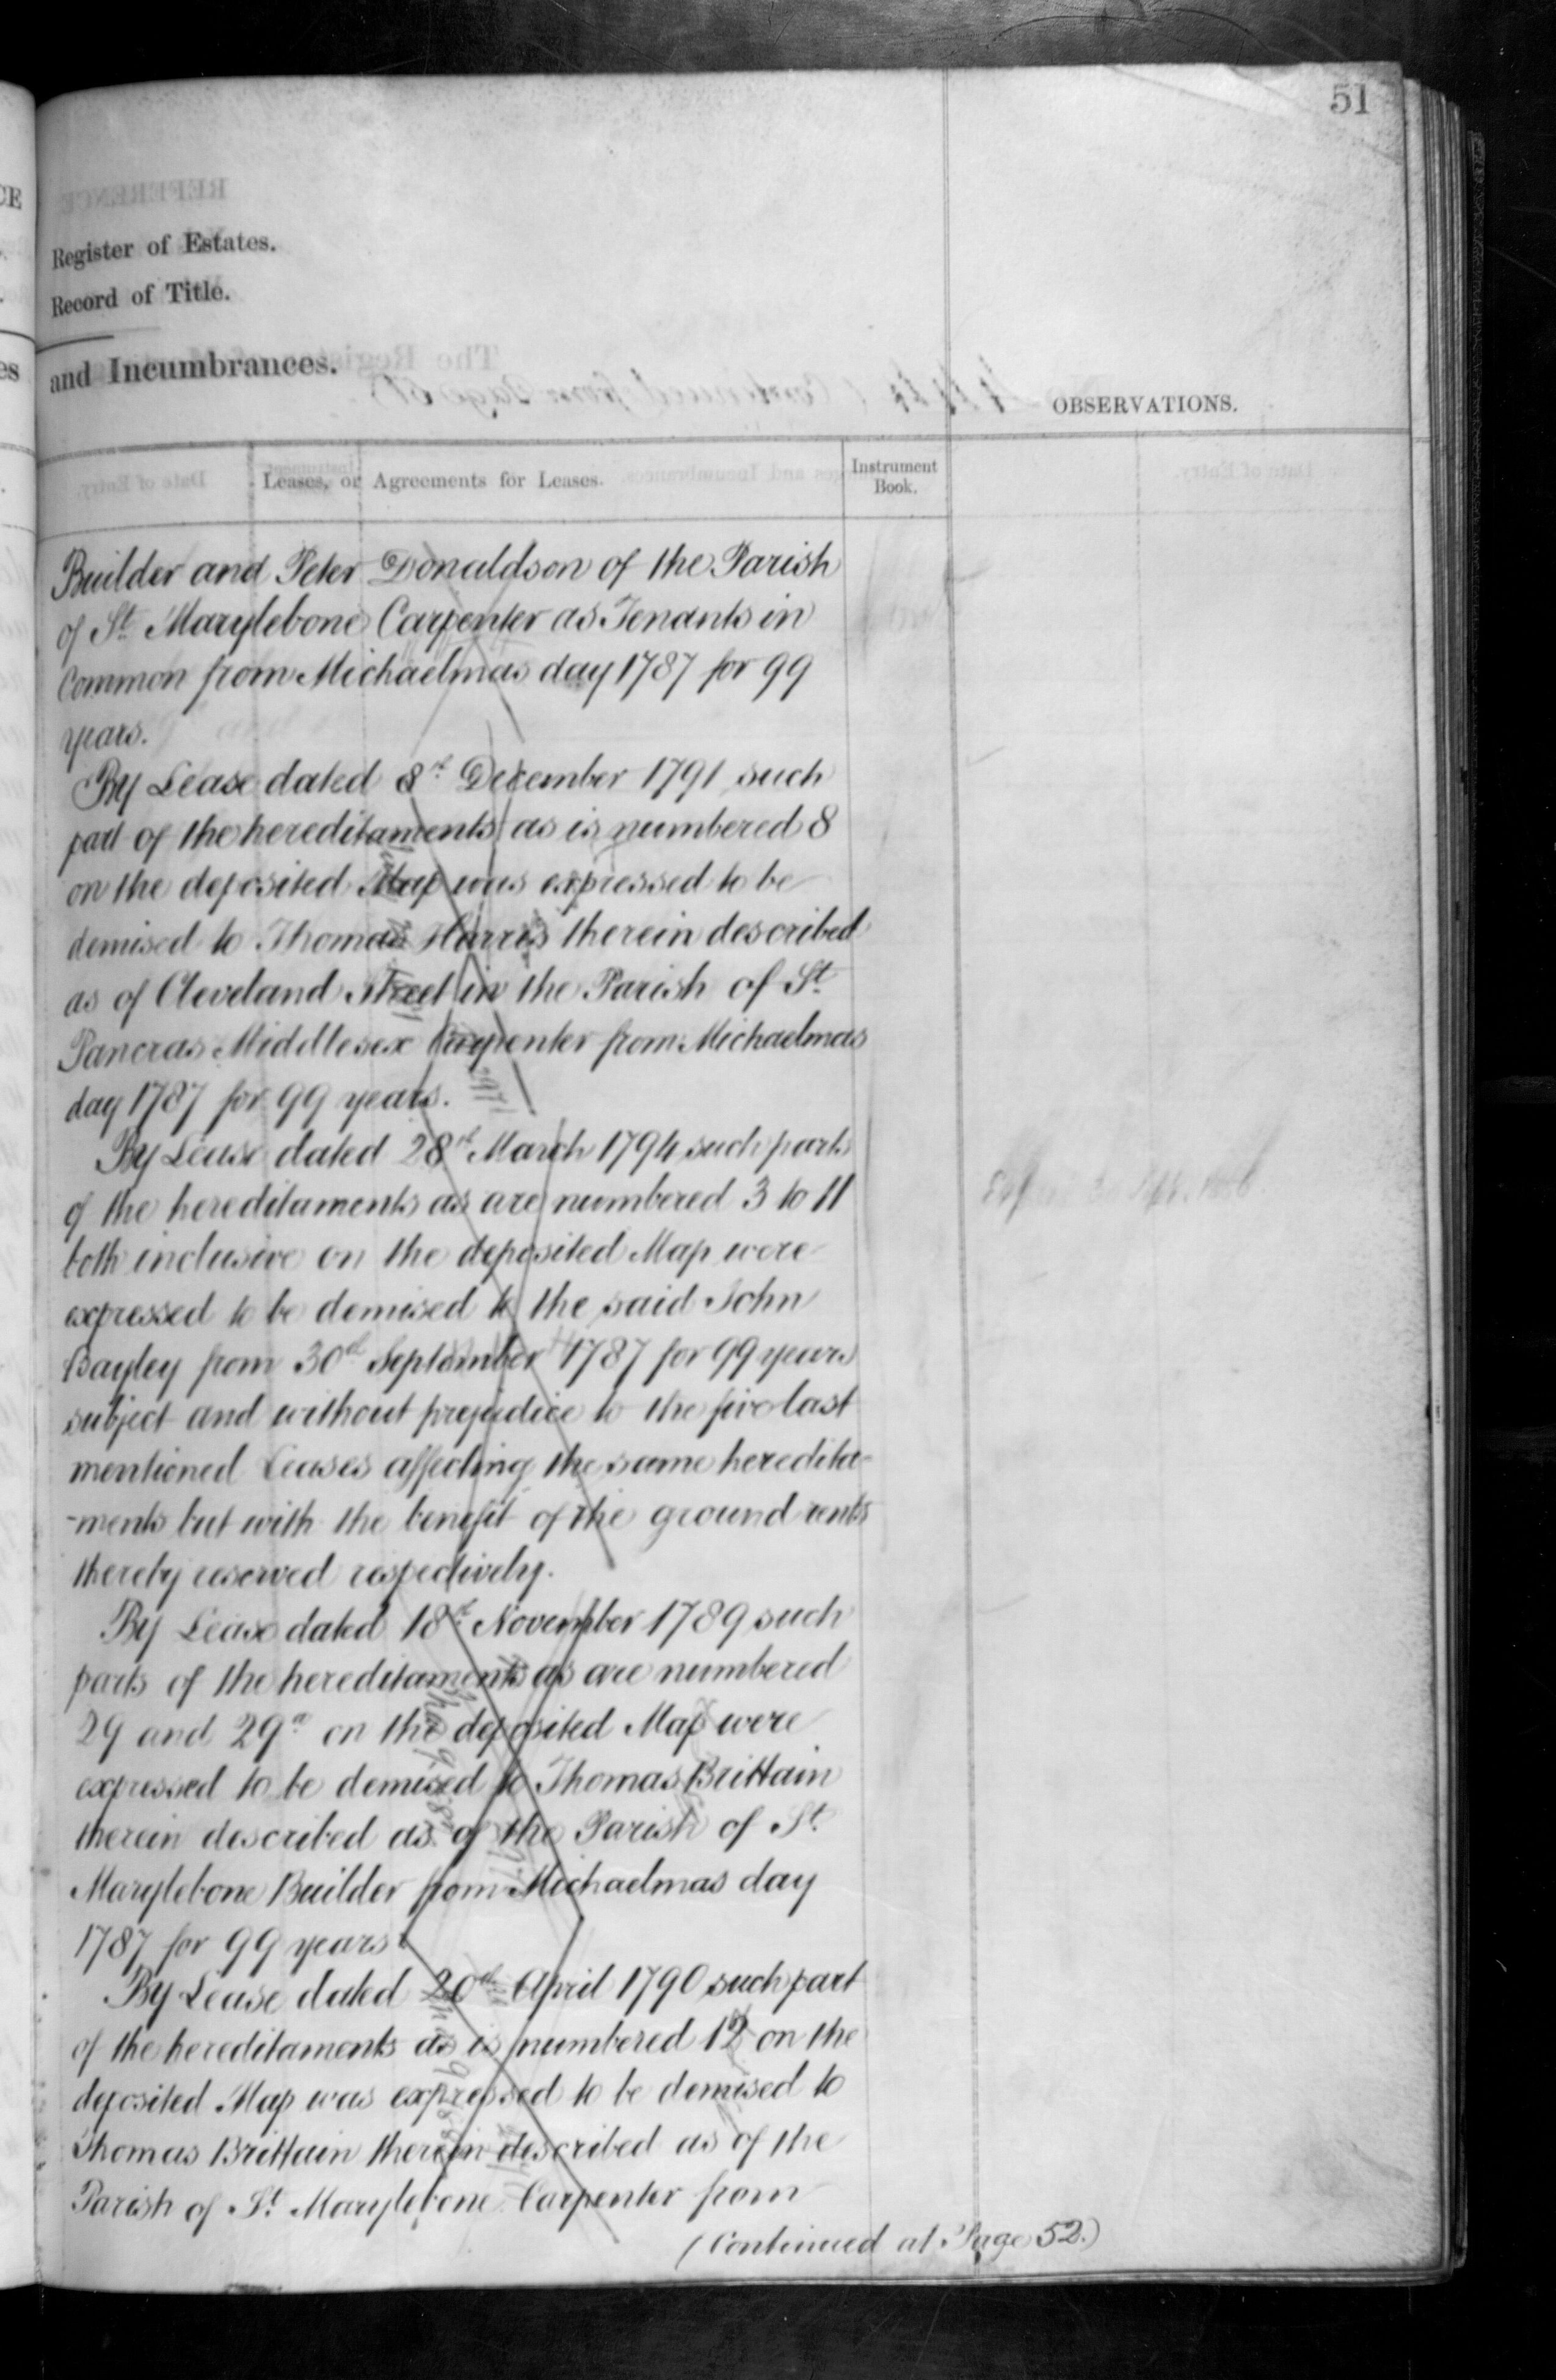 51
Register of Estates.
Record of Title.
and Incumbrances.
OBSERVATIONS.
Leases, or Agreements for Leases.
Instrument
Book.
Builder and Peter Donaldson of the Parish
of St. Marylebone Carpenter as Tenants in
Common from Michaelmas day 1787 for 99
years.
By Lease dated 8th December 1791 such
part of the hereditaments as is numbered 8
on the deposited Map was expressed to be
demised to Thomas Harris therein described
as of Cleveland Street in the Parish of St.
Pancras Middlesex Carpenter from Michaelmas
day 1787 for 99 years.
By Lease dated 28th March 1794 such parts
of the hereditaments as are numbered 3 to 11
both inclusive on the deposited Map were
expressed to be demised to the said John
Bayley from 30th September 1787 for 99 years
subject and without prejudice to the five last
mentioned Leases affecting the same heredita-
-ments but with the benefit of the ground rents
thereby reserved respectively.
By Lease dated 18th November 1789 such
parts of the hereditaments as are numbered
29 and 29a on the deposited Map were
expressed to be demised to Thomas Brittain
therein described as of the Parish of St.
Marylebone Builder from Michaelmas day
1787 for 99 years.
By Lease dated 20th April 1790 such part
of the hereditaments as is numbered 12 on the
deposited Map was expressed to be demised to
Thomas Brittain therein described as of the
Parish of St. Marylebone Carpenter from
(Continued at Page 52.)